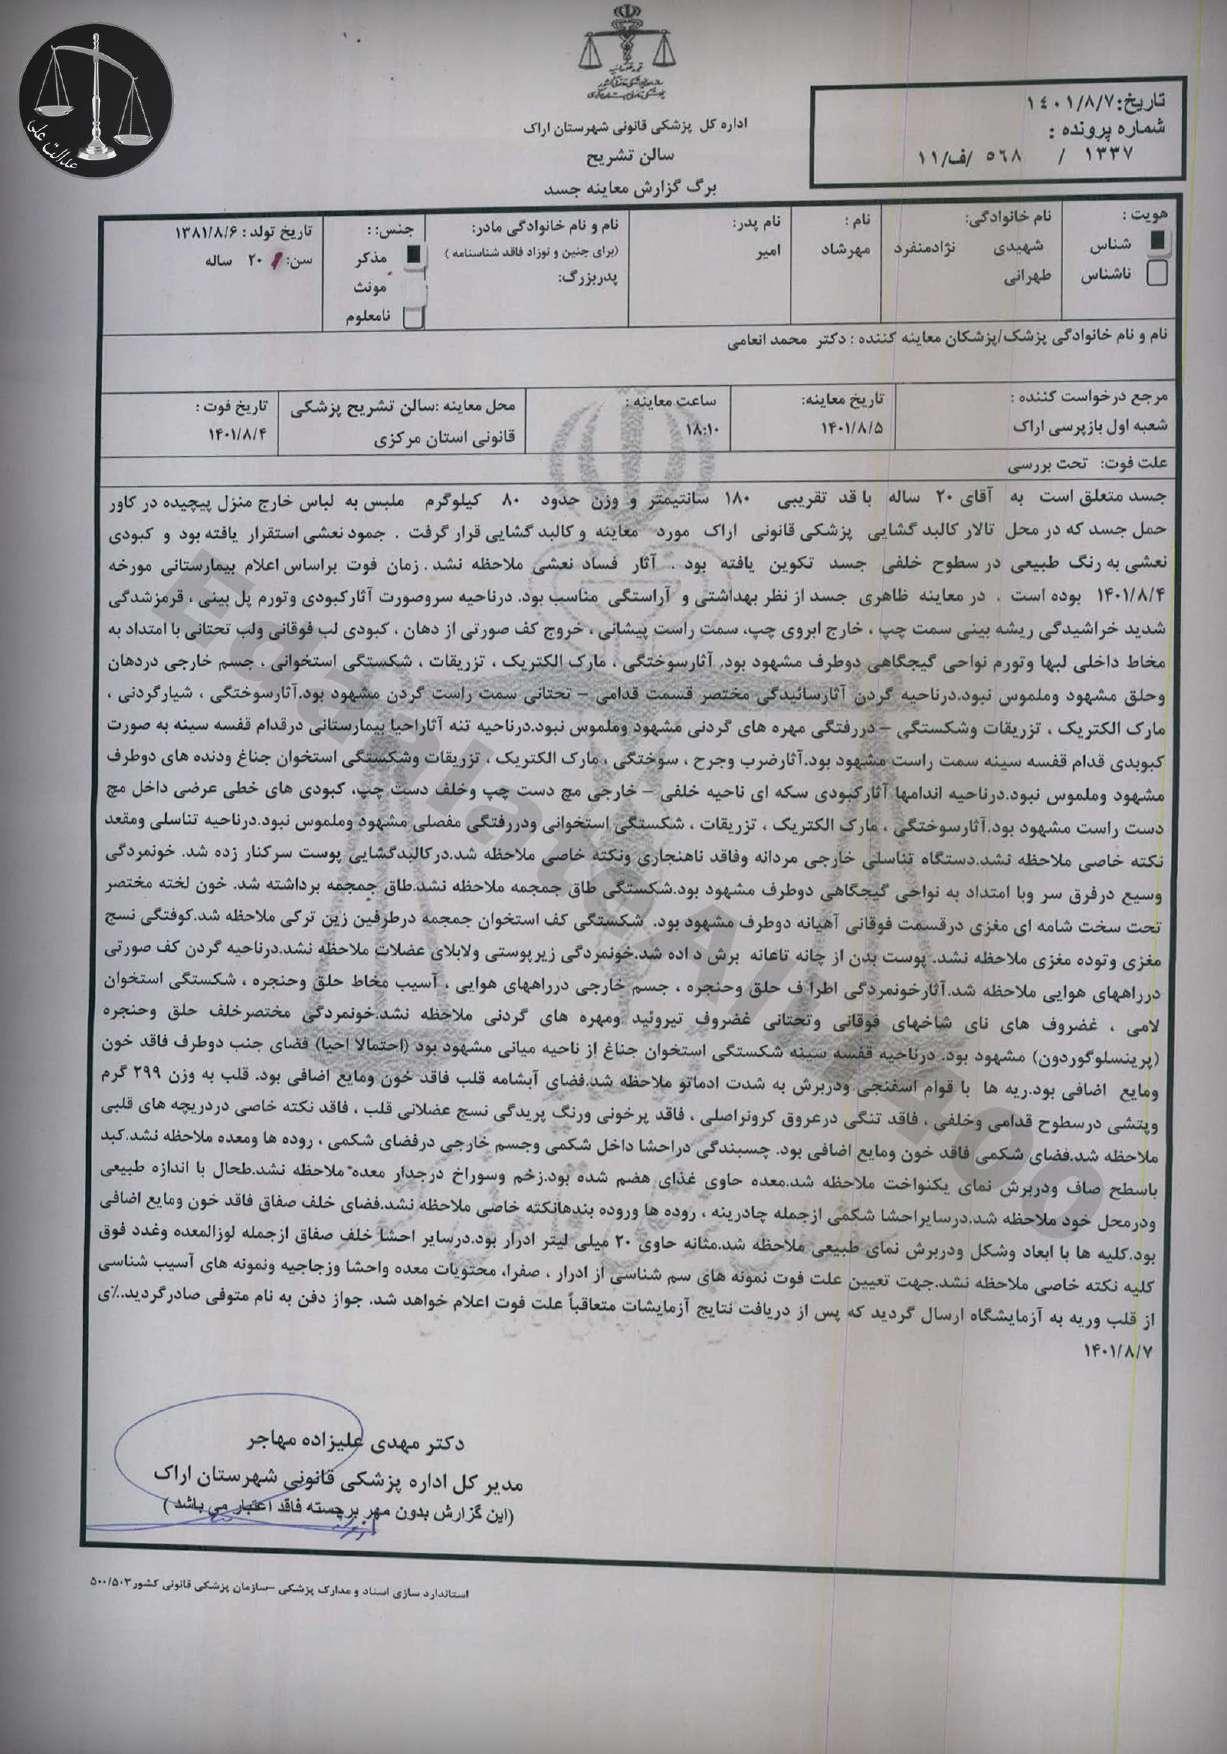 عدالت علی
اداره کل پزشکی قانونی شهرستان اراک
سالن تشریح
برگ گزارش معاینه جسد
تاریخ: ۱۴۰۱/۸/۷
شماره پرونده :
۱۳۳۷ / ۵۶۸ /ف/۱۱
هویت :
شناس
ناشناس
نام خانوادگی:
شهیدی نژادمنفرد
طهرانی
نام :
مهرشاد
نام پدر:
امیر
نام و نام خانوادگی مادر:
(برای جنین و نوزاد فاقد شناسنامه )
پدربزرگ:
جنس: :
مذکر
مونث
نامعلوم
تاریخ تولد : ۱۳۸۱/۸/۶
سن: ۲۰ ساله
نام و نام خانوادگی پزشک/پزشکان معاینه کننده : دکتر محمد انعامی
مرجع درخواست کننده :
شعبه اول بازپرسی اراک
تاریخ معاینه:
۱۴۰۱/۸/۵
ساعت معاینه :
۱۸:۱۰
محل معاینه :سالن تشریح پزشکی
قانونی استان مرکزی
تاریخ فوت :
۱۴۰۱/۸/۴
علت فوت: تحت بررسی
جسد متعلق است به آقای ۲۰ ساله با قد تقریبی ۱۸۰ سانتیمتر و وزن حدود ۸۰ کیلوگرم ملبس به لباس خارج منزل پیچیده در کاور
حمل جسد که در محل تالار کالبد گشایی پزشکی قانونی اراک مورد معاینه و کالبد گشایی قرار گرفت . جمود نعشی استقرار یافته بود و کبودی
نعشی به رنگ طبیعی در سطوح خلفی جسد تکوین یافته بود . آثار فساد نعشی ملاحظه نشد . زمان فوت براساس اعلام بیمارستانی مورخه
۱۴۰۱/۸/۴ بوده است . در معاینه ظاهری جسد از نظر بهداشتی و آراستگی مناسب بود. درناحیه سروصورت آثارکبودی وتورم پل بینی ، قرمزشدگی
شدید خراشیدگی ریشه بینی سمت چپ ، خارج ابروی چپ، سمت راست پیشانی ، خروج کف صورتی از دهان ، کبودی لب فوقانی ولب تحتانی با امتداد به
مخاط داخلی لبها وتورم نواحی گیجگاهی دوطرف مشهود بود. آثارسوختگی ، مارک الکتریک ، تزریقات ، شکستگی استخوانی ، جسم خارجی دردهان
وحلق مشهود وملموس نبود.درناحیه گردن آثارسائیدگی مختصر قسمت قدامی – تحتانی سمت راست گردن مشهود بود.آثارسوختگی ، شیارگردنی ،
مارک الکتریک ، تزریقات وشکستگی – دررفتگی مهره های گردنی مشهود وملموس نبود.درناحیه تنه آثاراحیا بیمارستانی درقدام قفسه سینه به صورت
کبویدی قدام قفسه سینه سمت راست مشهود بود.آثارضرب وجرح ، سوختگی ، مارک الکتریک ، تزریقات وشکستگی استخوان جناغ ودنده های دوطرف
مشهود وملموس نبود.درناحیه اندامها آثارکبودی سکه ای ناحیه خلفی – خارجی مچ دست چپ وخلف دست چپ، کبودی های خطی عرضی داخل مچ
دست راست مشهود بود.آثارسوختگی ، مارک الکتریک ، تزریقات ، شکستگی استخوانی ودررفتگی مفصلی مشهود وملموس نبود.درناحیه تناسلی ومقعد
نکته خاصی ملاحظه نشد.دستگاه تناسلی خارجی مردانه وفاقد ناهنجاری ونکته خاصی ملاحظه شد.درکالبدگشایی پوست سرکنار زده شد. خونمردگی
وسیع درفرق سر وبا امتداد به نواحی گیجگاهی دوطرف مشهود بود.شکستگی طاق جمجمه ملاحظه نشد.طاق جمجمه برداشته شد. خون لخته مختصر
تحت سخت شامه ای مغزی درقسمت فوقانی آهیانه دوطرف مشهود بود. شکستگی کف استخوان جمجمه درطرفین زین ترکی ملاحظه شد.کوفتگی نسج
مغزی وتوده مغزی ملاحظه نشد. پوست بدن از چانه تاعانه برش د اده شد.خونمردگی زیرپوستی ولابلای عضلات ملاحظه نشد.درناحیه گردن کف صورتی
درراههای هوایی ملاحظه شد.آثارخونمردگی اطرا ف حلق وحنجره ، جسم خارجی درراههای هوایی ، آسیب مخاط حلق وحنجره ، شکستگی استخوان
لامی ، غضروف های نای شاخهای فوقانی وتحتانی غضروف تیروئید ومهره های گردنی ملاحظه نشد.خونمردگی مختصرخلف حلق وحنجره
(پرینسلوگوردون) مشهود بود. درناحیه قفسه سینه شکستگی استخوان جناغ از ناحیه میانی مشهود بود (احتمالا احیا) فضای جنب دوطرف فاقد خون
ومایع اضافی بود.ریه ها با قوام اسفنجی ودربرش به شدت ادماتو ملاحظه شد.فضای آبشامه قلب فاقد خون ومایع اضافی بود. قلب به وزن ۲۹۹ گرم
وپتشی درسطوح قدامی وخلفی ، فاقد تنگی درعروق کرونراصلی ، فاقد پرخونی ورنگ پریدگی نسج عضلانی قلب ، فاقد نکته خاصی دردریچه های قلبی
ملاحظه شد.فضای شکمی فاقد خون ومایع اضافی بود. چسبندگی دراحشا داخل شکمی وجسم خارجی درفضای شکمی ، روده ها ومعده ملاحظه نشد.کبد
باسطح صاف ودربرش نمای یکنواخت ملاحظه شد.معده حاوی غذای هضم شده بود.زخم وسوراخ درجدار معده ملاحظه نشد.طحال با اندازه طبیعی
ودرمحل خود ملاحظه شد.درسایراحشا شکمی ازجمله چادرینه ، روده ها وروده بندهانکته خاصی ملاحظه نشد.فضای خلف صفاق فاقد خون ومایع اضافی
بود.کلیه ها با ابعاد وشکل ودربرش نمای طبیعی ملاحظه شد.مثانه حاوی ۲۰ میلی لیتر ادرار بود.درسایر احشا خلف صفاق ازجمله لوزالمعده وغدد فوق
کلیه نکته خاصی ملاحظه نشد.جهت تعیین علت فوت نمونه های سم شناسی از ادرار ، صفرا، محتویات معده واحشا وزجاجیه ونمونه های آسیب شناسی
از قلب وریه به آزمایشگاه ارسال گردید که پس از دریافت نتایج آزمایشات متعاقباً علت فوت اعلام خواهد شد. جواز دفن به نام متوفی صادرگردید.٪ی
۱۴۰۱/۸/۷
دکتر مهدی علیزاده مهاجر
مدیر کل اداره پزشکی قانونی شهرستان اراک
(این گزارش بدون مهر برجسته فاقد اعتبار می باشد )
استاندارد سازی اسناد و مدارک پزشکی –سازمان پزشکی قانونی کشور۵۰۰/۵۰۳